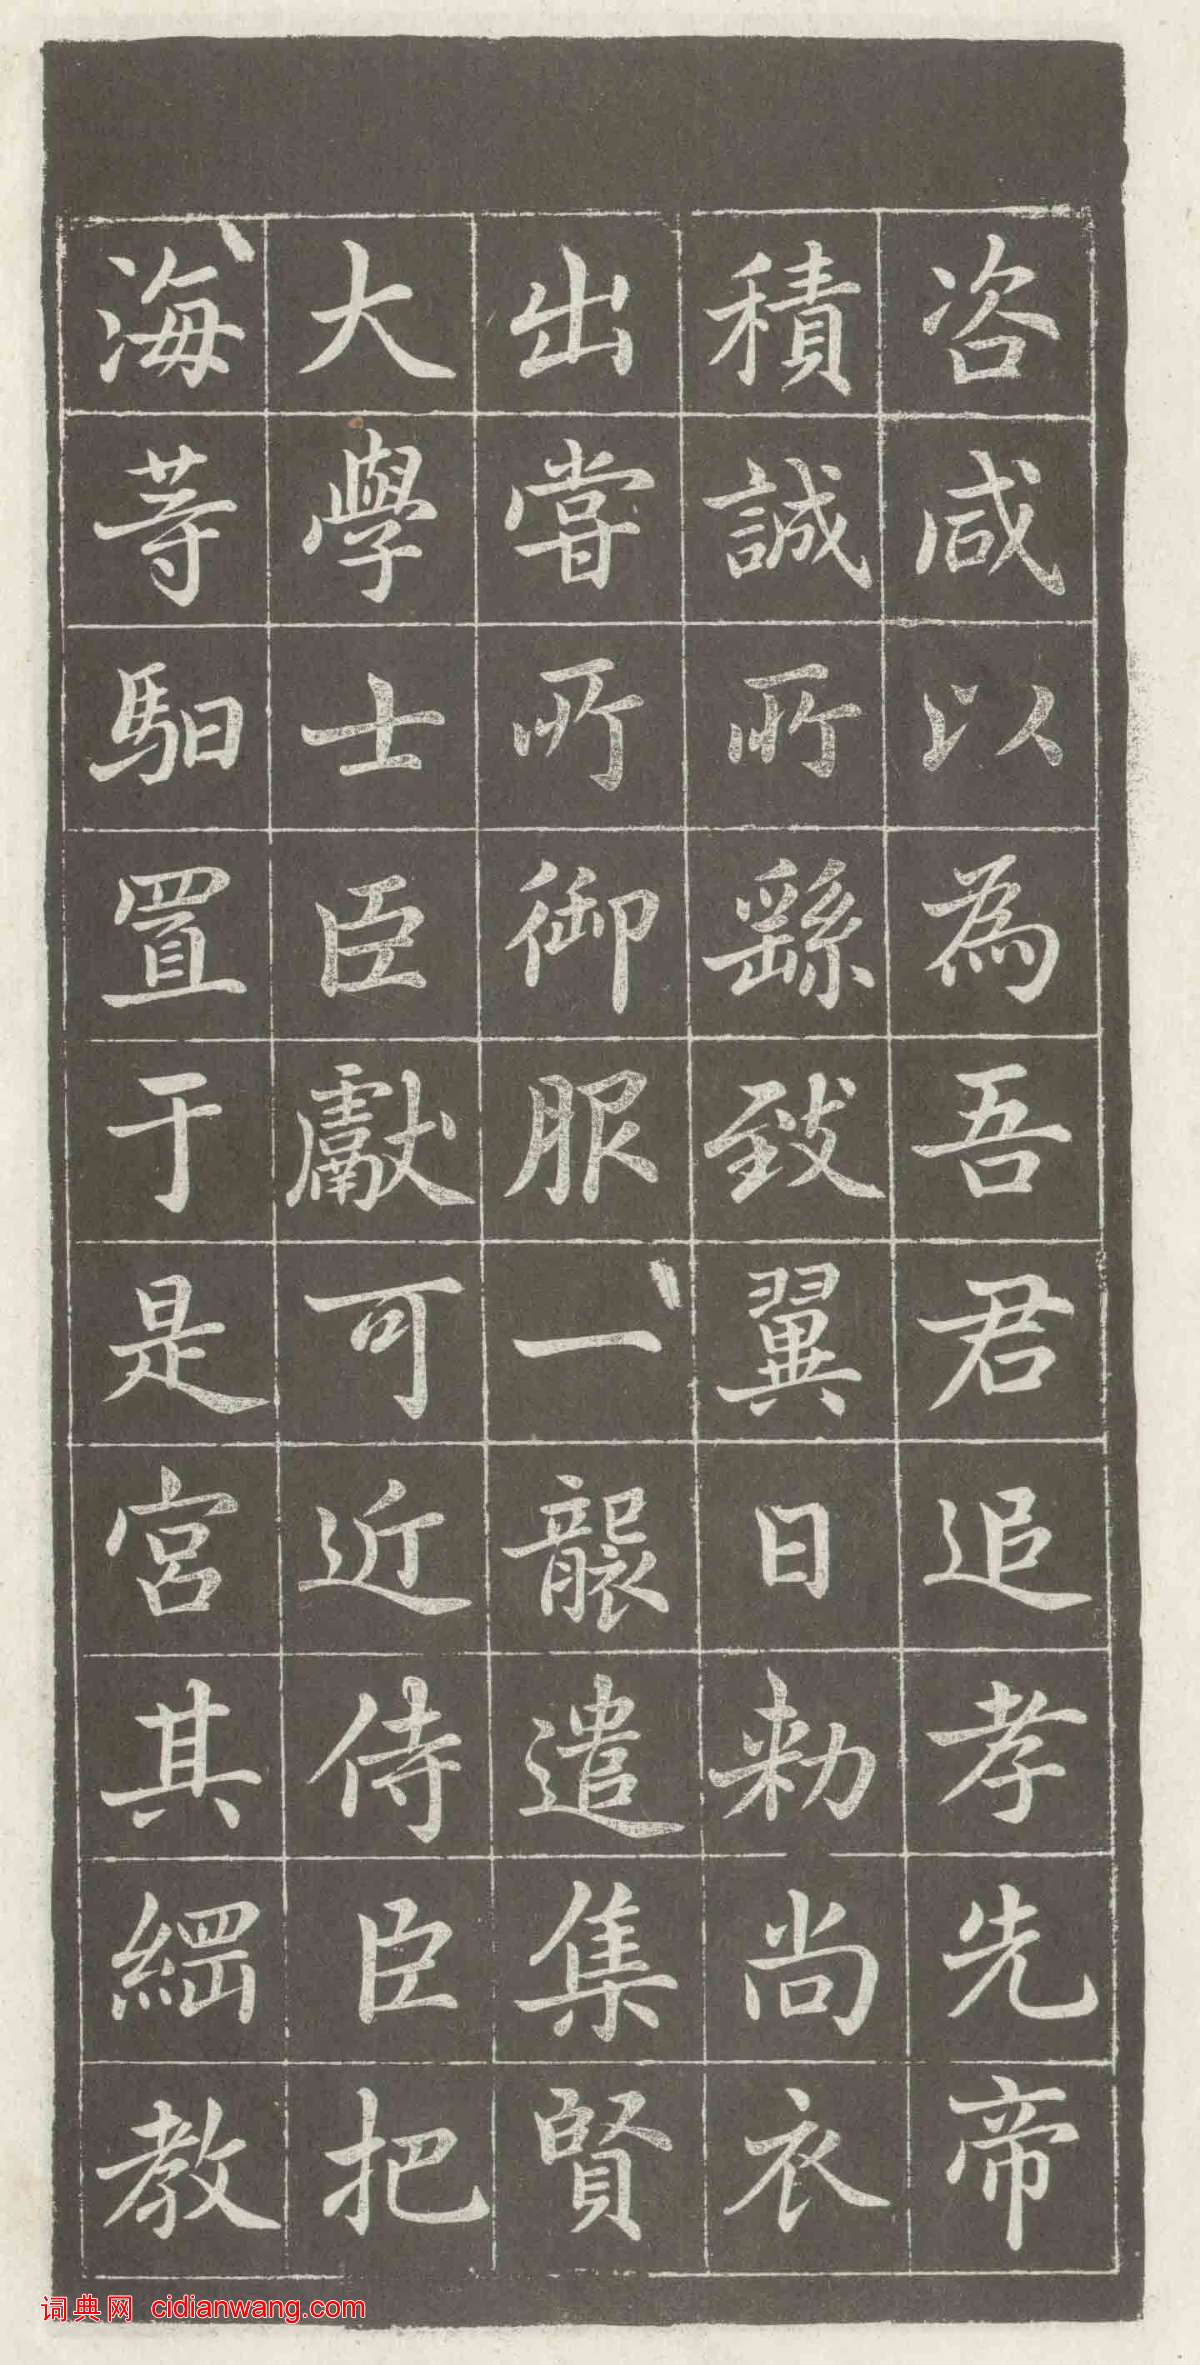 咨咸以為吾君追孝先帝
積誠所繇致翼日勑尚衣
出嘗所御服一襲遣集賢
大學士臣獻可近侍臣把
海等馹置于是宮其綱教
词典网 cidianwang.com